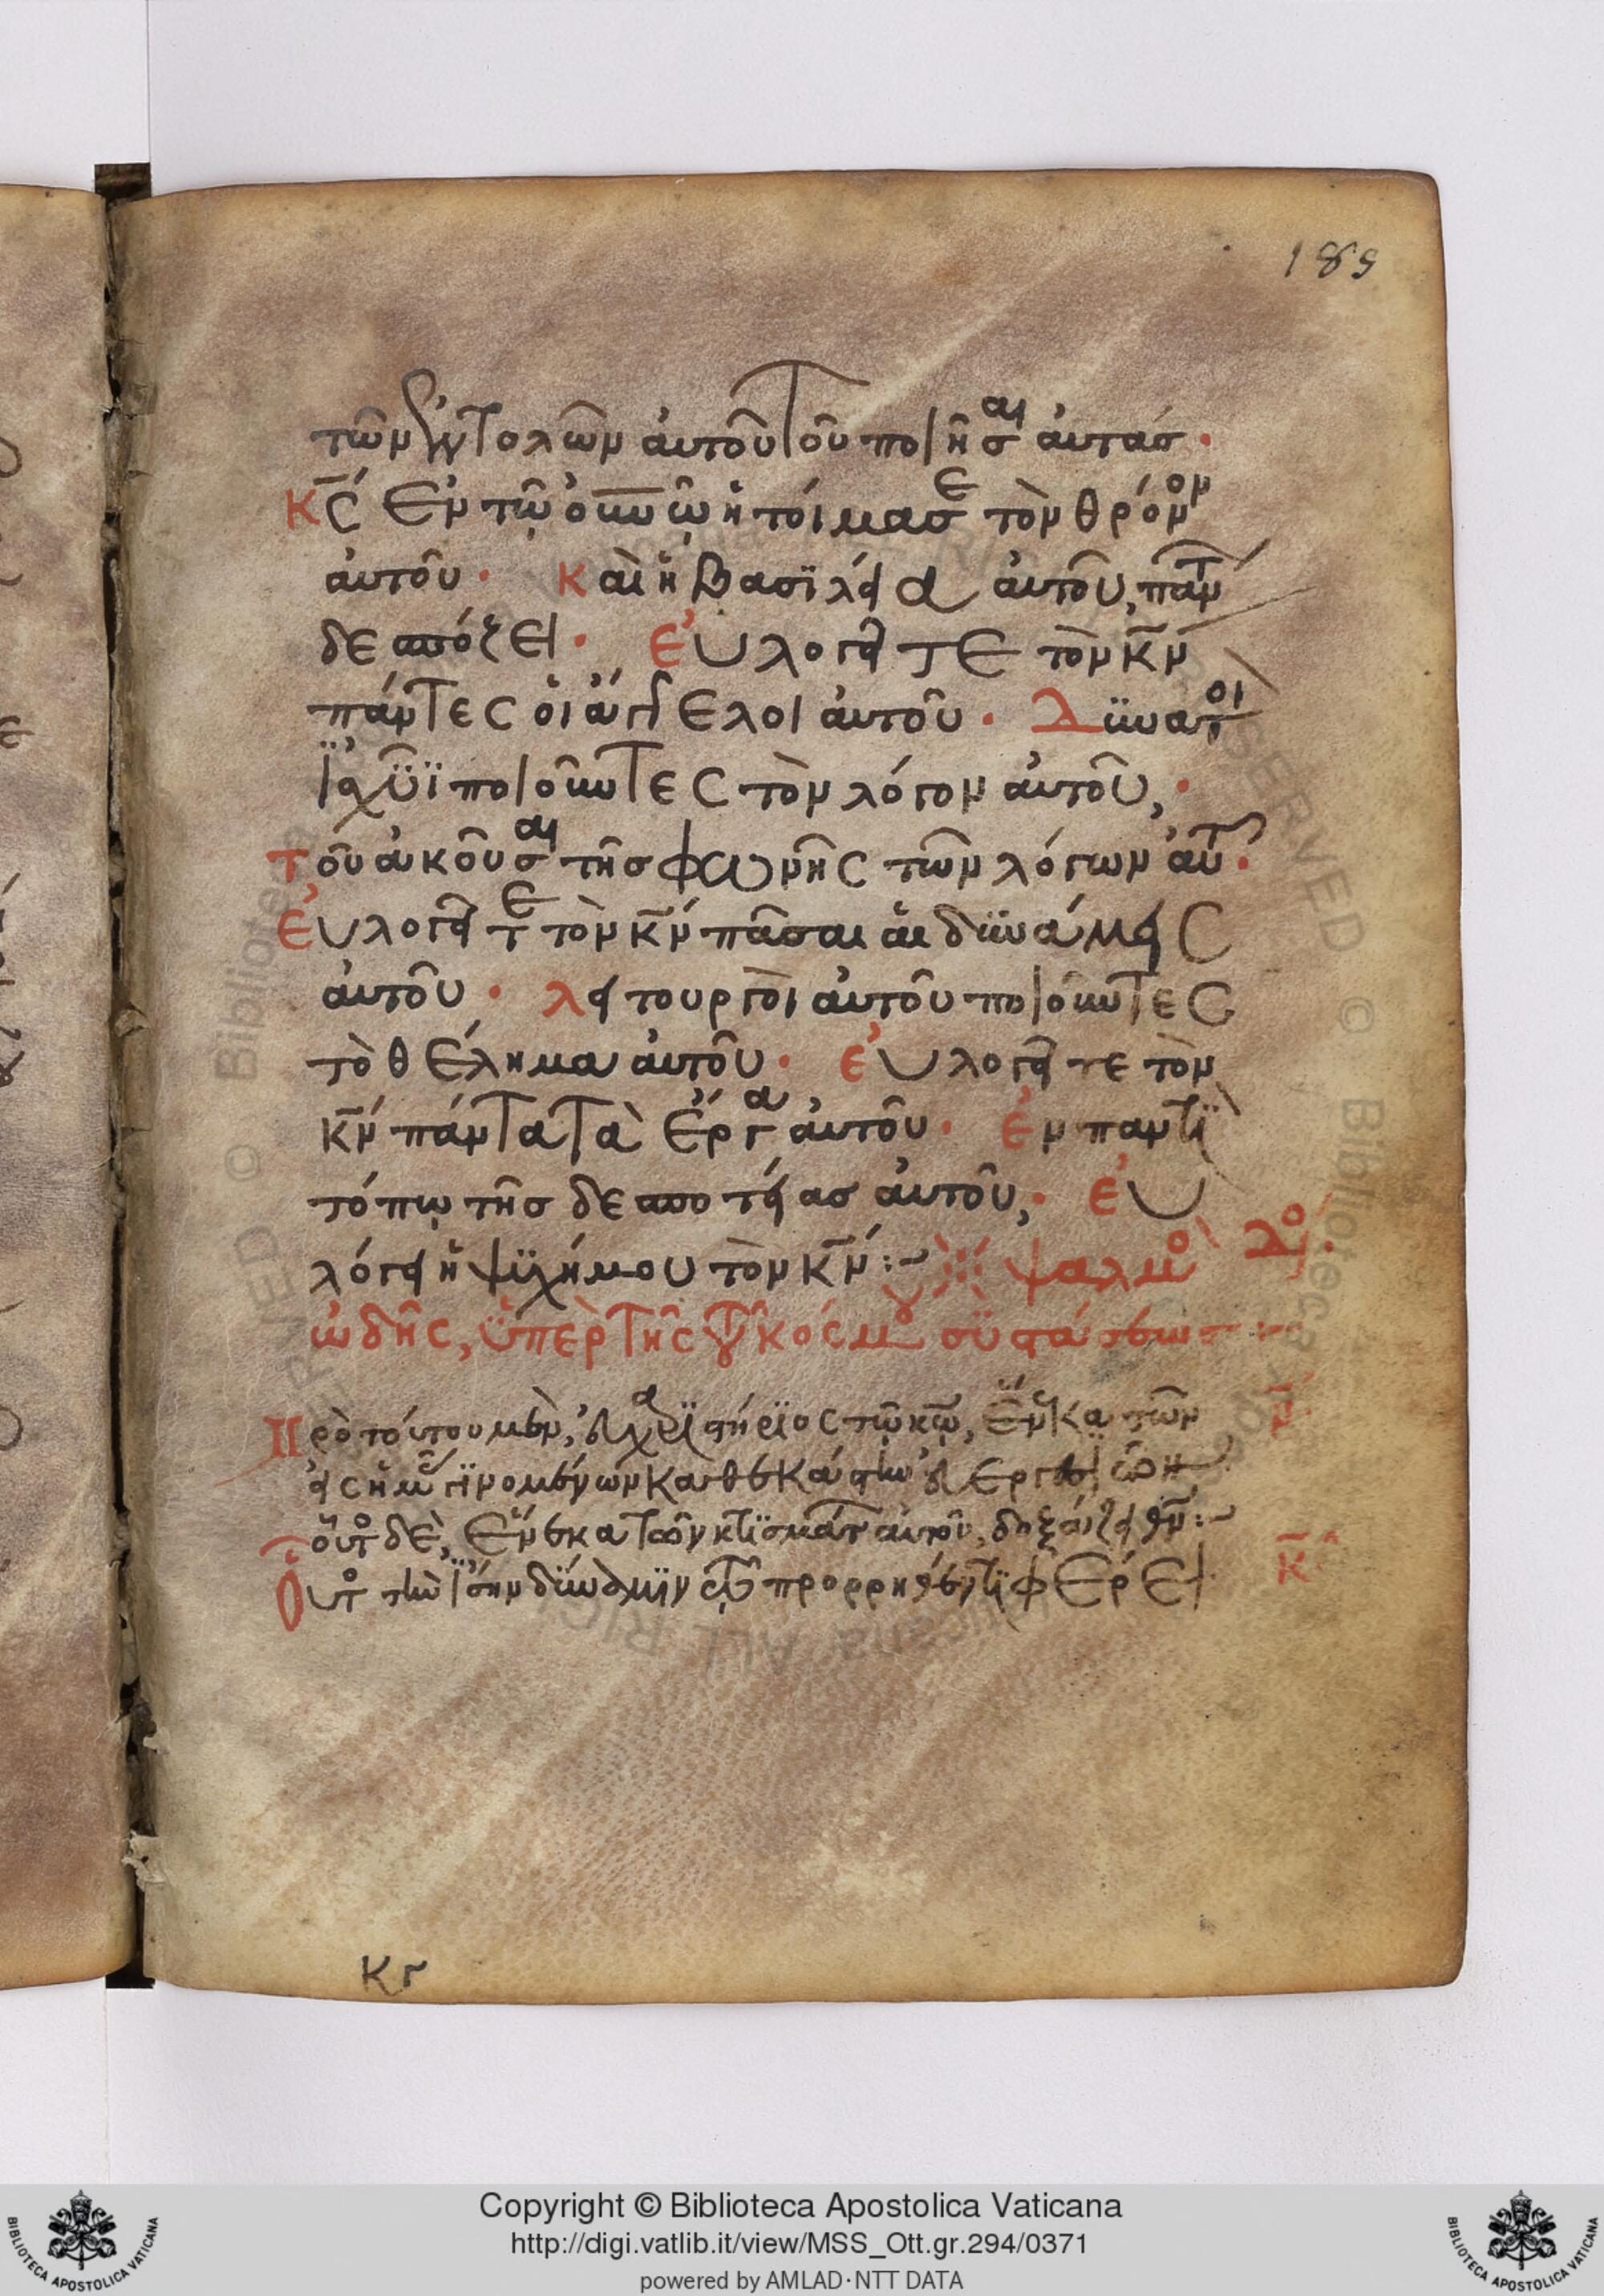 189
τῶν ἐντολῶν αὐτοῦ τοῦ ποιῆσαι αὐτάσ·
Κ̅ς̅ ἐν τῷ ὀυνῷ ἡτοίμασε τὸν θρόνον
αὐτοῦ· Καὶ ἡ βασϊλεία αὐτοῦ, πάντ
δεσπόζει· Εὐλογεῖτε τὸν κ̅ν̅
πάντες οἱ ἄγγελοι αὐτοῦ· Δϋνατοὶ
ἰσχύϊ ποιοῦντες τὸν λόγον αὐτοῦ,·
Τοῦ ἀκοῦσαι τῆσ φωνῆς τῶν λόγων αὐτ·
Εὐλογεῖτε τὸν κ̅ν̅ πᾶσαι αἱ δϋνάμεις
αὐτοῦ· λειτουργοὶ αὐτοῦ ποιοῦντες
τὸ θέλημα αὐτοῦ· εὐλογεῖτε τὸν
κ̅ν̅ πάντα τὰ ἔργα αὐτοῦ· ἐν παντῒ
τόπῳ τῆσ δεσποτείασ αὐτοῦ,· εὐ
λόγει ἡ ψϋχή μου τὸν κ̅ν̅:~ ψαλμὸ
ὠδῆς, ϋπὲρ τῆς τοῦ κόσμου σϋστάσεωσ:~
Πρὸ τούτου μὲν, εὐχαρϊστήρϊος τῷ κ̅ῳ̅, ἕνεκα τῶν
εἰς ἡμᾶς γϊνομένων καθεκάστην εὐεργεσϊῶν
οὗτος δὲ, ἕνεκα τῶν κτϊσμάτ αὐτοῦ, δοξάζει θ̅ν̅:~
Οὗτος τὴν ἴσην δύναμϊν τῷ προρρηθέντϊ φέρει
κγ
Copyright © Biblioteca Apostolica Vaticana
http://digi.vatlib.it/view/MSS_Ott.gr.294/0371
powered by AMLAD·NTT DATA
BIBLIOTECA APOSTOLICA VATICANA
BIBLIOTECA APOSTOLICA VATICANA